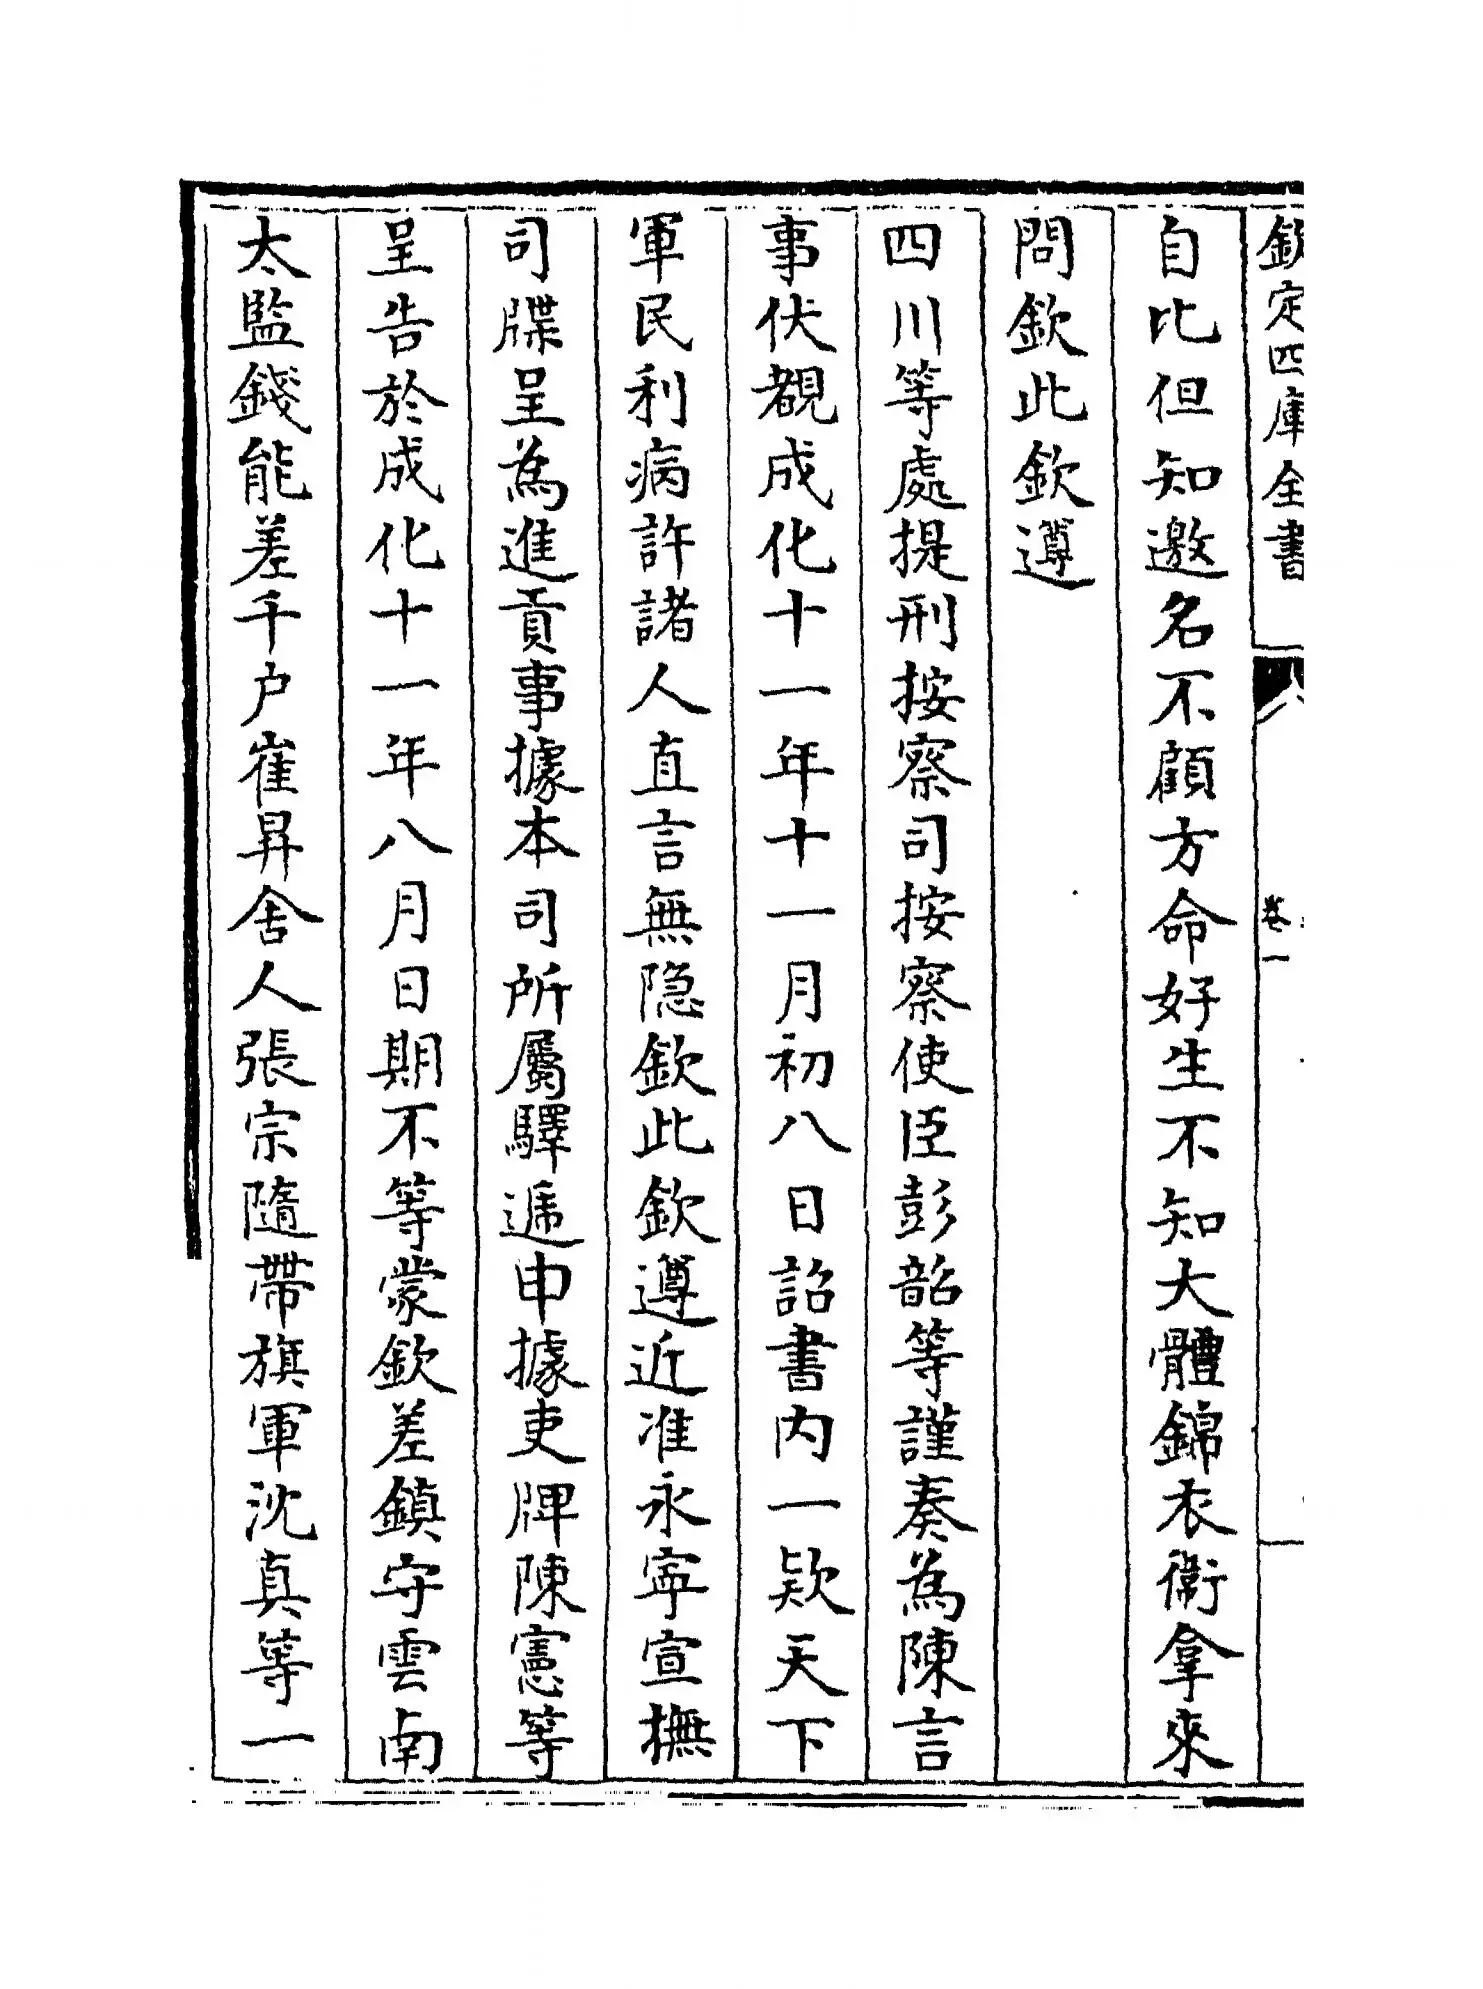 欽定四庫全書
卷一
自比但知邀名不顧方命好生不知大體錦衣衞拿來
問欽此欽遵
四川等處提刑按察司按察使臣彭韶等謹奏為陳言
事伏覩成化十一年十一月初八日詔書内一欵天下
軍民利病許諸人直言無隐欽此欽遵近准永寜宣撫
司牒呈為進貢事據本司所屬驛遞申據吏牌陳憲等
呈告於成化十一年八月日期不等蒙欽差鎮守雲南
太監錢能差千户崔昇舎人張宗隨帶旗軍沈真等一